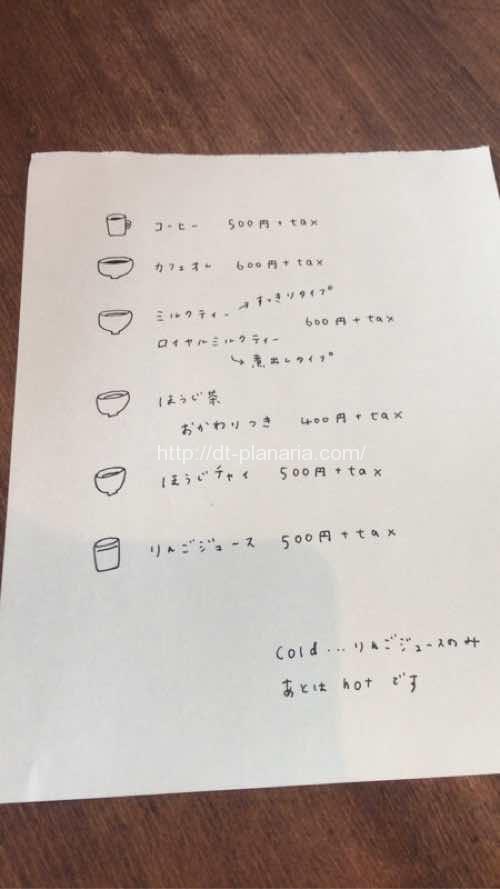 コーヒー 500円+tax
カフェオレ 600円+tax
ミルクティー → すっきりタイプ
ロイヤルミルクティー 600円+tax
↳ 煮出しタイプ
ほうじ茶
おかわりつき 400円+tax
http://dt-planaria.com/
ほうじチャイ 500円+tax
りんごジュース 500円+tax
cold...りんごジュースのみ
あとは hot です